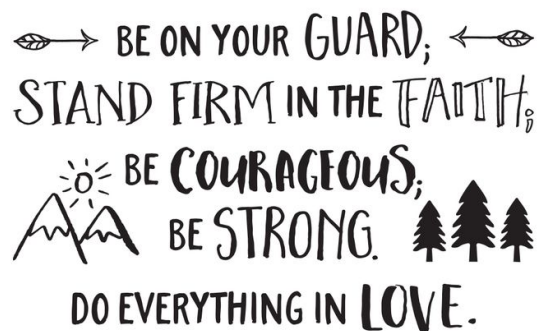 BE ON YOUR GUARD;
STAND FIRM IN THE FAITH;
BE COURAGEOUS;
BE STRONG.
DO EVERYTHING IN LOVE.